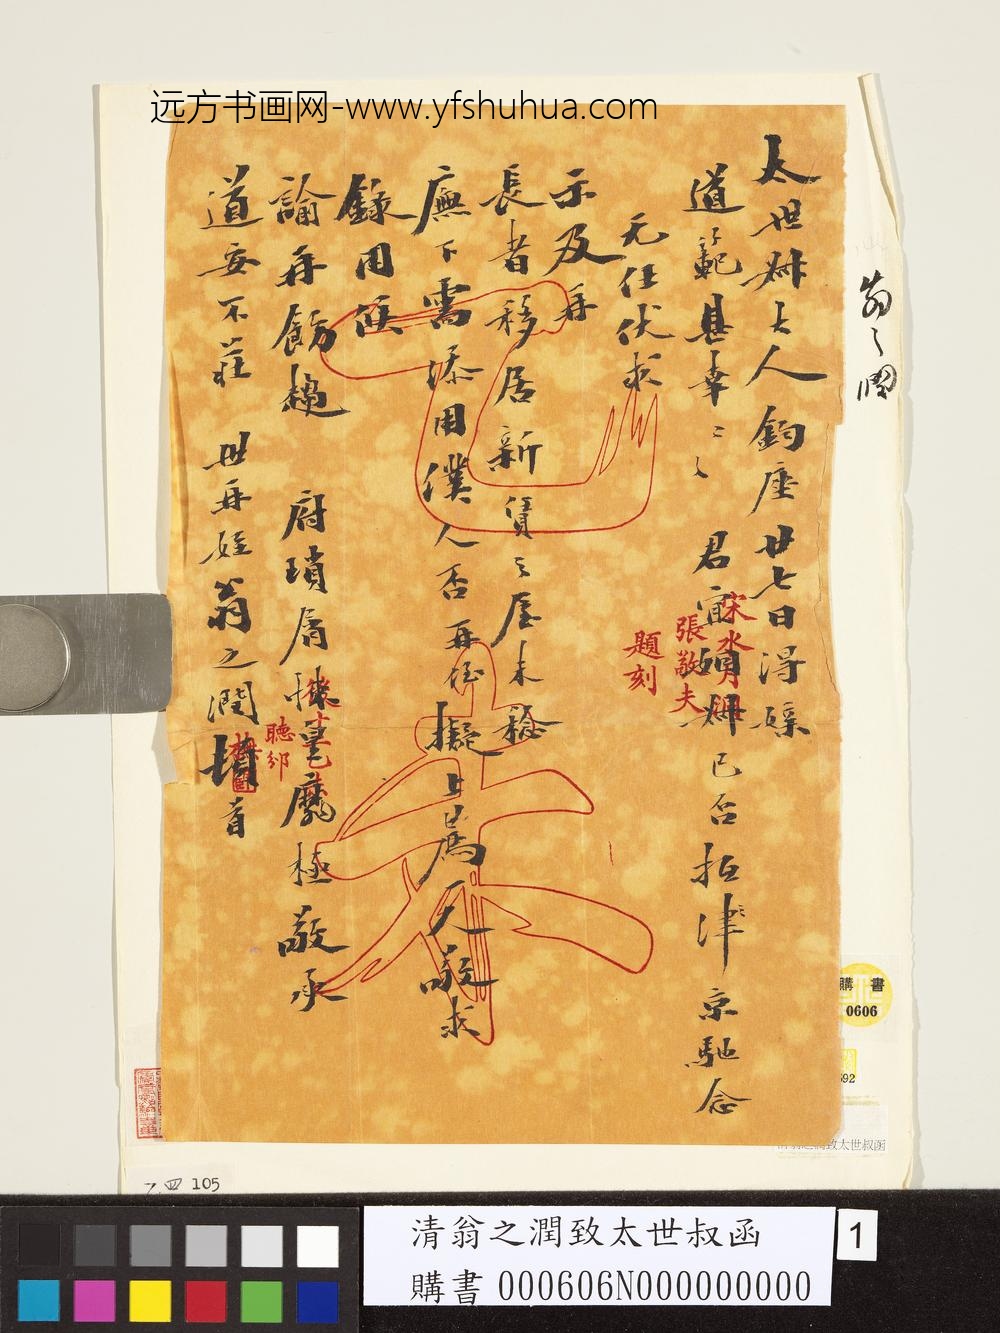 远方书画网-www.yfshuhua.com
太世叔大人鈞座廿七日得
道範甚幸
君 叔已否抵津京馳念
无任伏求
示及再
長者移居新賃之屋未稔
廉下需添用僕人否再侄擬上一
敬求
錄用候
諭再飭趨
府瑣屑 極敬承
道安不莊
世再姪翁之潤頓首
宋水月洞
張敬夫
題刻
聽邠
翁之潤
購書
0606
清翁之潤致太世叔函
乙四 105
清翁之潤致太世叔函
購書 000606N000000000
1